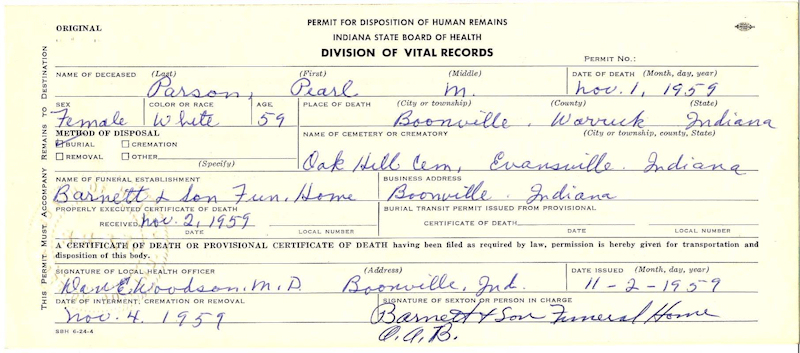 ORIGINAL
PERMIT FOR DISPOSITION OF HUMAN REMAINS
INDIANA STATE BOARD OF HEALTH
DIVISION OF VITAL RECORDS
PERMIT NO.:
THIS PERMIT MUST ACCOMPANY REMAINS TO DESTINATION
NAME OF DECEASED (Last) (First) (Middle) DATE OF DEATH (Month, day, year)
Parson, Pearl M. Nov. 1, 1959
SEX COLOR OR RACE AGE PLACE OF DEATH (City or township) (County) (State)
Female White 59 Boonville, Warrick Indiana
METHOD OF DISPOSAL NAME OF CEMETERY OR CREMATORY (City or township, county, State)
BURIAL CREMATION
REMOVAL OTHER (Specify)
Oak Hill Cem, Evansville, Indiana
NAME OF FUNERAL ESTABLISHMENT BUSINESS ADDRESS
Barnett & Son Fun. Home Boonville, Indiana
PROPERLY EXECUTED CERTIFICATE OF DEATH BURIAL TRANSIT PERMIT ISSUED FROM PROVISIONAL
RECEIVED Nov. 2, 1959 CERTIFICATE OF DEATH
DATE LOCAL NUMBER DATE LOCAL NUMBER
A CERTIFICATE OF DEATH OR PROVISIONAL CERTIFICATE OF DEATH having been filed as required by law, permission is hereby given for transportation and
disposition of this body.
SIGNATURE OF LOCAL HEALTH OFFICER (Address) DATE ISSUED (Month, day, year)
Dan E Woodson, M.D. Boonville, Ind. 11-2-1959
DATE OF INTERMENT, CREMATION OR REMOVAL SIGNATURE OF SEXTON OR PERSON IN CHARGE
Nov. 4. 1959 Barnett & Son Funeral Home
O.A.B.
SBH 6-24-4